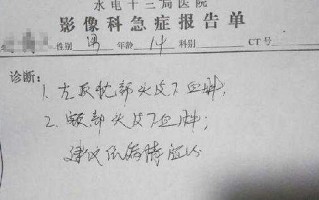 水电十三局医院
影像科急症报告单
性别 男 年龄 14 科别 CT号
诊断：
1. 左顶枕部头皮下血肿；
2. 额部头皮下血肿；
建议依病情